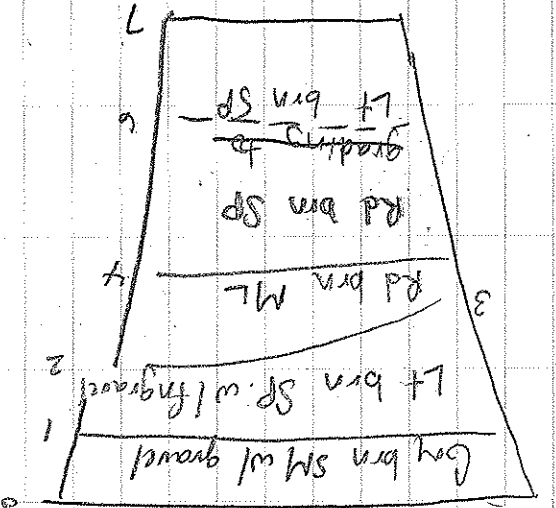 0
Gry brn SM w/ gravel
1
Lt brn SP. w/ fn gravel
2
3
Rd brn ML
4
Rd brn SP
grading to
Lt brn SP
6
7